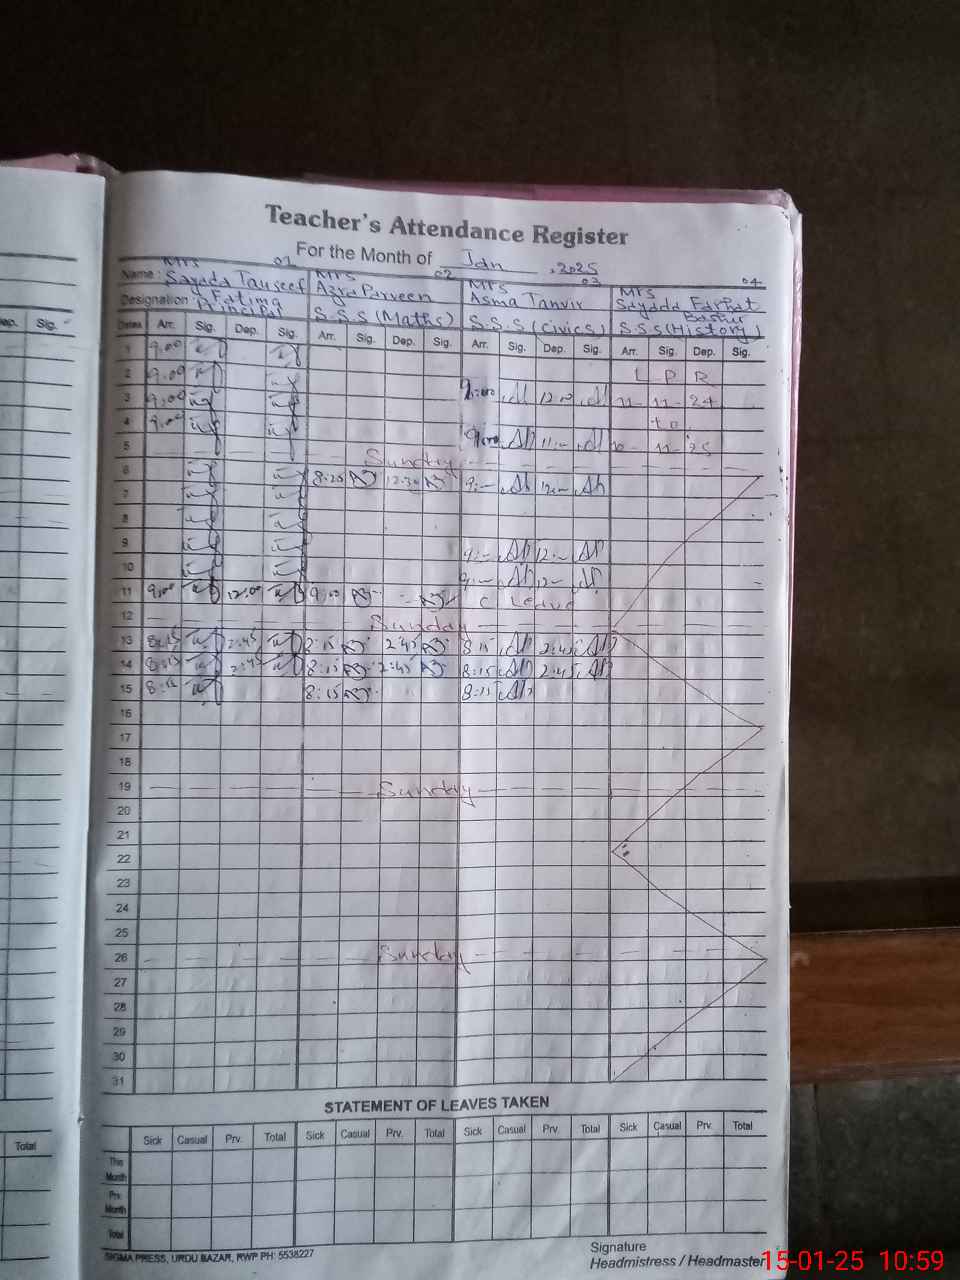 Teacher's Attendance Register
For the Month of Jan, 2025
Mrs 01 Mrs 02 Mrs 03 Mrs 04
Name: Sayada Tauseef Fatima Azra Parveen Asma Tanvir Sayada Farhat Bashir
Designation: Principal S.S.S (Maths) S.S.S (Civics) S.S.S (History)
Dates Arr. Sig. Dep. Sig. Arr. Sig. Dep. Sig. Arr. Sig. Dep. Sig. Arr. Sig. Dep. Sig.
1 9.00
2 9.00 L P R
3 9.00 9:00 12.00 11-24
4 9.00 to
5 Sunday
6 8.20 12.30 9:- 12:-
7
8
9 9:- 12:-
10 9:- 12-
11 9.00 12.00 9.00 C Leave
12 Sunday
13 8:15 2:45 8:15 2:45 8:15 2:45
14 8:15 2:45 8:15 2:45 8:15 2:45
15 8:15 8:15
16
17
18
19 Sunday
20
21
22
23
24
25
26 Sunday
27
28
29
30
31
STATEMENT OF LEAVES TAKEN
Sick Casual Prv. Total Sick Casual Prv. Total Sick Casual Prv. Total Sick Casual Prv. Total
This Month
Prv. Month
Total
SIGMA PRESS, URDU BAZAR, RWP PH: 5538227
Signature
Headmistress / Headmaster
Dep. Sig.
Total
15-01-25 10:59